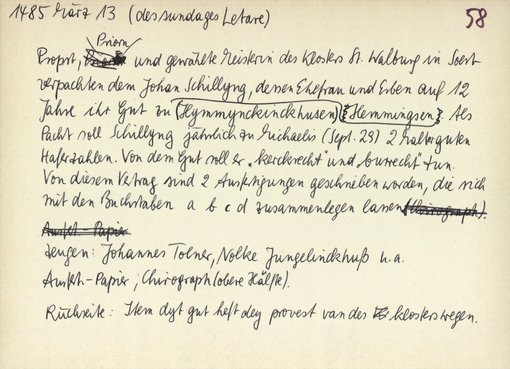 1485 März 13 (des sundages Letare) 58
Priorin
Propst, und gewählte Meisterin des Klosters St. Walburg in Soest
verpachten dem Johan Schillyng, dessen Ehefrau und Erben auf 12
Jahre ihr Gut zu (Hymmynckinckhusen) {Hemmingsen}. Als
Pacht soll Schillyng jährlich zu Michaelis (Sept. 29) 2 Malter guten
Hafer zahlen. Von dem Gut soll er „kerckrecht" und burrecht" tun.
Von diesem Vertrag sind 2 Ausfertigungen geschrieben worden, die sich
mit den Buchstaben a b c d zusammenlegen lassen (Chirograph).
Ausf.-Papier
Zeugen: Johannes Tolner, Nolke Jungelinckhuß u.a.
Ausf.-Papier; Chirograph (obere Hälfte).
Rückseite: Item dyt gut heft dey provest van des klosters wegen.